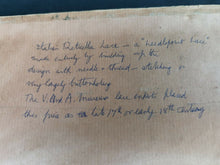 Italian Reticella Lace is a "needlepoint lace"
made entirely by building up the
design with needle & thread – stitching or
very largely buttonholing
The V. And A. Museum lace experts placed
this piece as late 17th or early 18th century